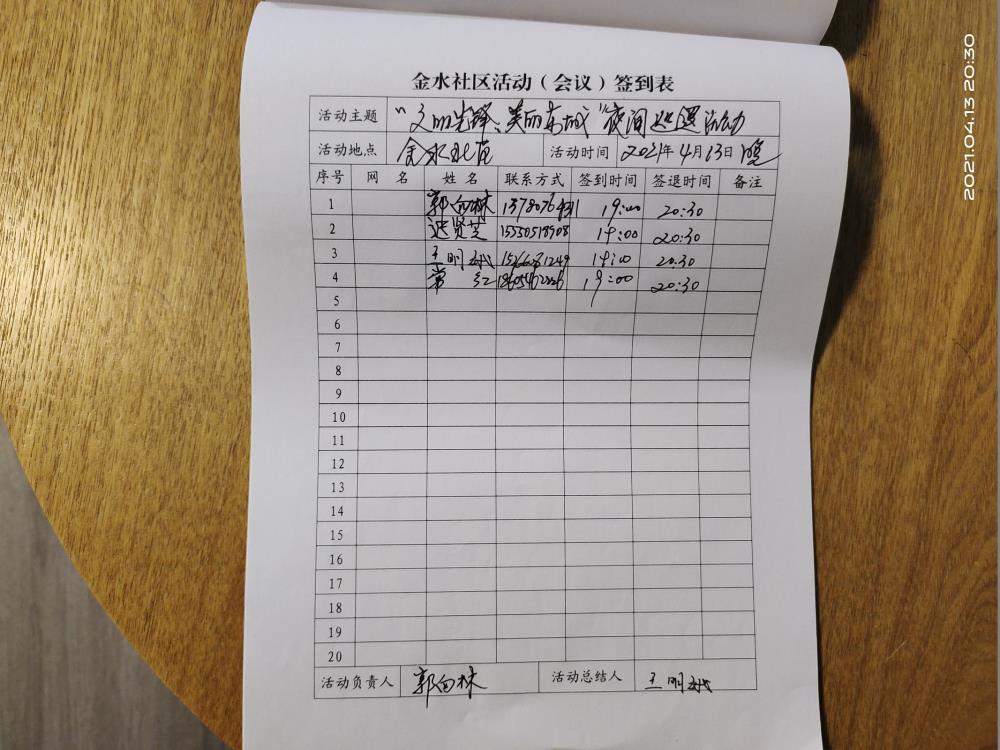 金水社区活动（会议）签到表
活动主题 “文明先锋、美丽东城”夜间巡逻活动
活动地点 金水北区 活动时间 2021年4月13日 晚
序号 网 名 姓 名 联系方式 签到时间 签退时间 备注
1 郭向林 19:00 20:30
2 迟贤芝 15550518908 19:00 20:30
3 王明 19:00 20:30
4 常红 19:00 20:30
5
6
7
8
9
10
11
12
13
14
15
16
17
18
19
20
活动负责人 郭向林 活动总结人 王明
2021.04.13 20:30